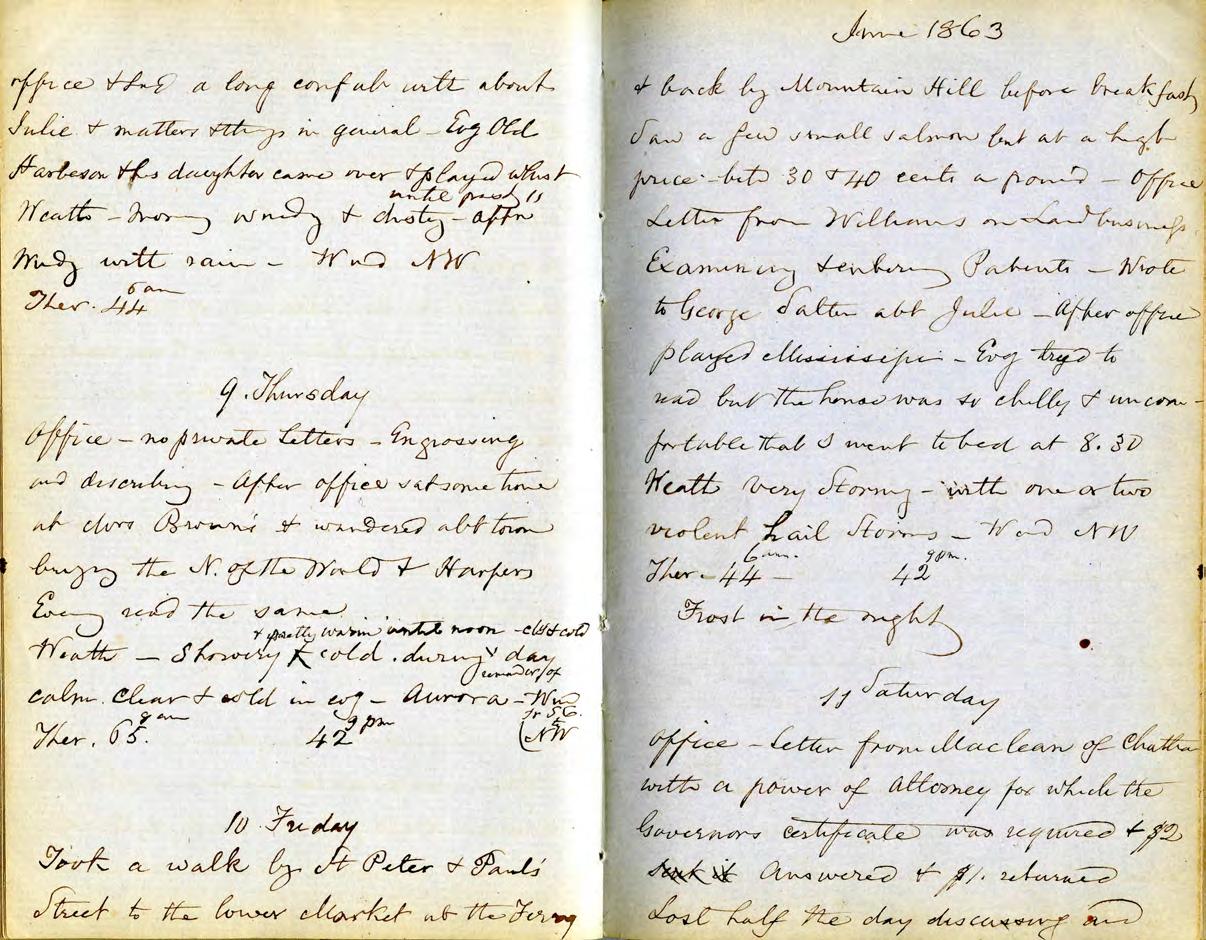 office & had a long confab with about
Julie & matters & things in general - Evg Old
Harbeson & his daughter came over & played whist
until past 11
Weath - Morng windy & dusty - aftn
Windy with rain - Wind NW
6 am
Ther. 44
9. Thursday
Office - no private letters - Engrossing
and describing - After office sat some time
at Mrs Brown's & wandered abt town
buying the N. of the World & Harpers
Eveng read the same
& pretty warm until noon - clr & cold
Weath - Showery & cold during day
remainder of
calm clear & cold in evg - Aurora - Wind
fr SE.
8 am 9 pm
Ther. 65. 42 (NW
10 Friday
Took a walk by St Peter & Paul's
Street to the lower Market at the Ferry
June 1863
& back by Mountain Hill before breakfast
Saw a few small salmon but at a high
price - betn 30 & 40 cents a pound - Office
Letter from Williams on Land business
Examining & entering Patents - Wrote
to George Salter abt Julie - After office
played Mississipi - Evg tryd to
read but the house was so chilly & uncom-
fortable that I went to bed at 8.30
Weath very Stormy - with one or two
violent hail Storms - Wind NW
6 am. 9 pm.
Ther - 44 - 42
Frost in the night
11 Saturday
Office - Letter from Maclean of Chatham
with a power of Attorney for which the
Governors certificate was required & $2
sent it Answered & $1. returned
Lost half the day discussing and